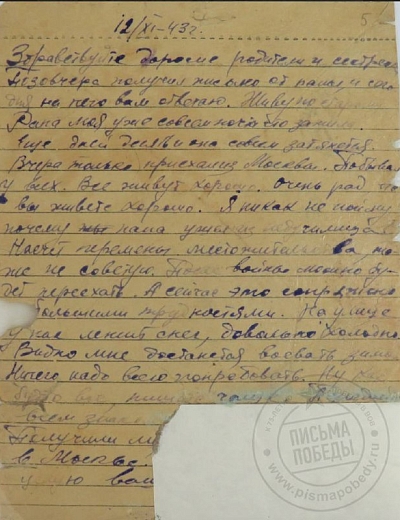 5
12/XI-43г.
Здравствуйте дорогие родители и сестра
Позовчера получил письмо от папы, и сего
дня на него вам отвечаю. Живу по
Рана моя уже совсем почти зажила.
Еще дней десять и она совсем затянется.
Вчера только приехал из Москвы. Побывал
у всех. Все живут хорошо. Очень рад что
вы живете хорошо. Я никак не пойму
почему мама
Насчет перемены местожительства, то
же не советую. После войны можно бу-
дет переехать. А сейчас это сопряжено
большими трудностями. На улице
у нас лежит снег, довольно холодно.
Видно мне достанется воевать зимой
Ничего надо всего попробовать. Ну
вот пишите
всем
Получили ли
в Москве.
вам
ПИСЬМА
ПОБЕДЫ
www.pismapobedy.ru